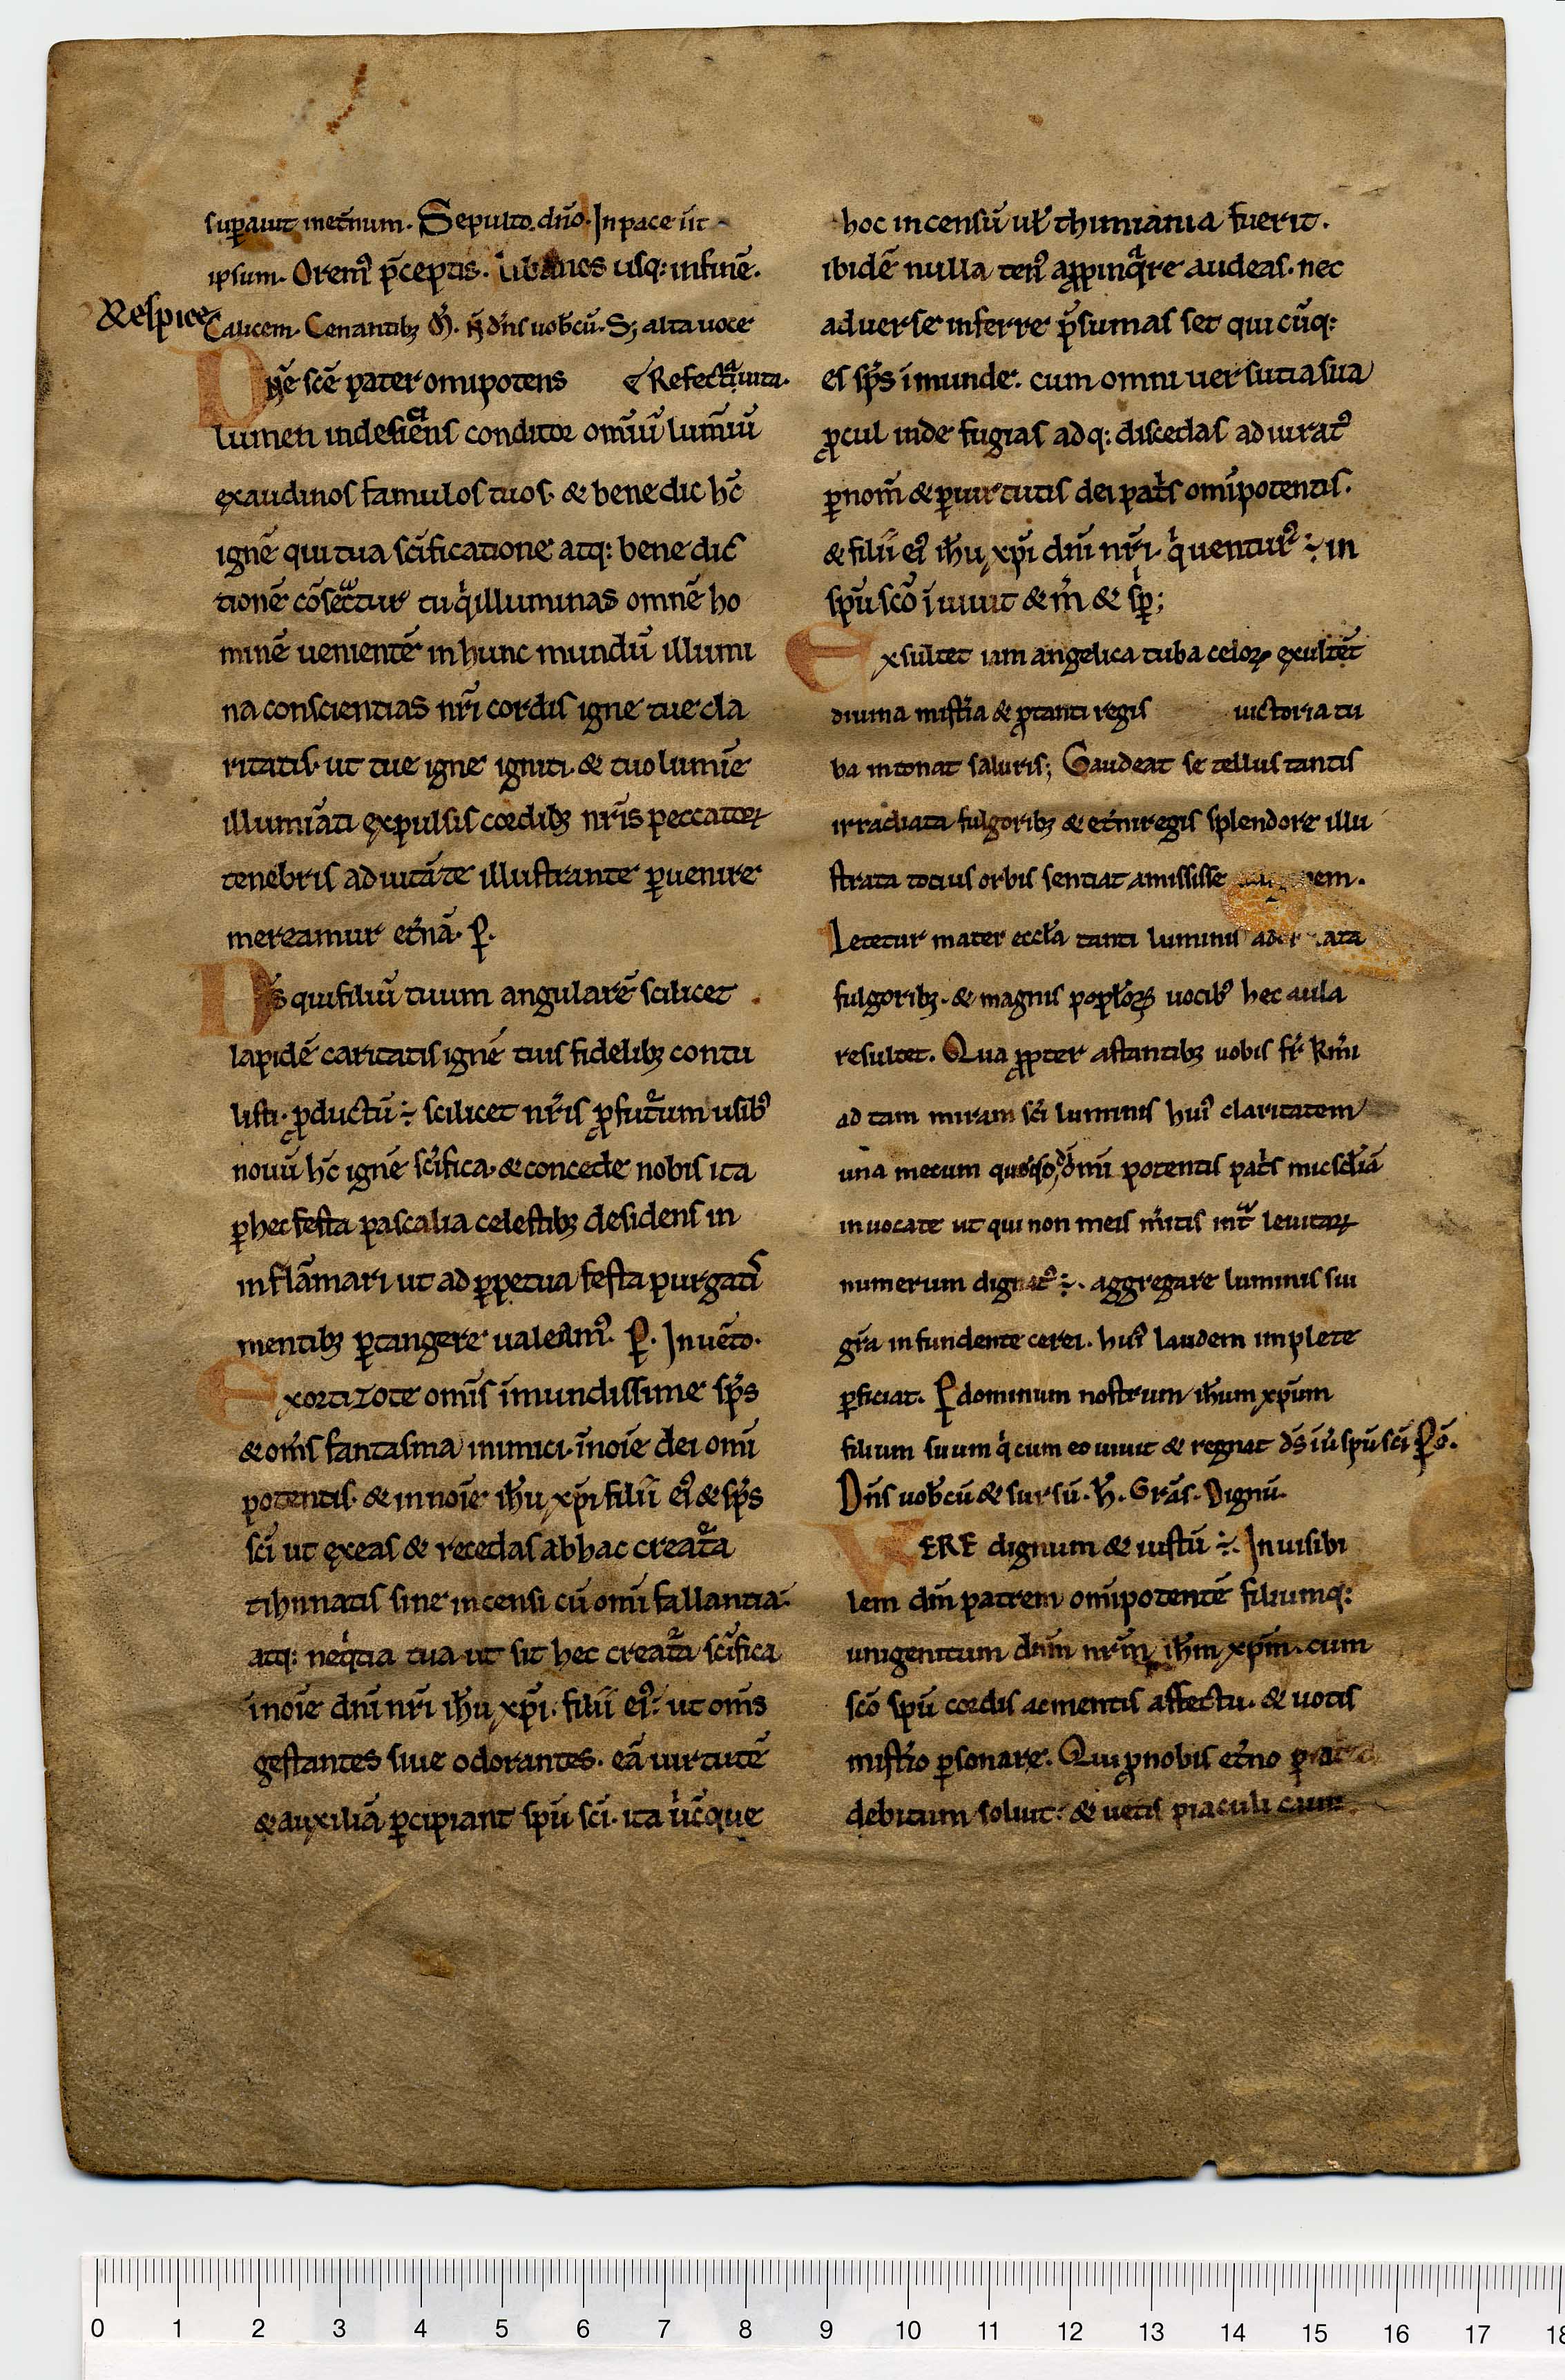 suꝑauit inet̄num. Sepulto dn̄o. In pace ut
ipsum. Orem᷒ p̄ceptis. Libanos usq: in finē.
Respice
Calicem. Cenantibꝫ dn̄s uob̄cū. Sꝫ alta uoce
Dn̄e sc̄e pater omipotens & Refecti uita.
lumen indeficiens conditor omīū lumīū
exaudi nos famulos tuos. & benedic hc̄
ignē qui tua sc̄ificatione atq: benedic
tionē cōsecᵃtur tu qⁱ illuminas omnē ho
minē uenientē in hunc mundū illumi
na conscientias nr̄i cordis igne tue cla
ritatis. ut tue igne igniti. & tuo lumīe
illumīati expulsis cordibꝫ nr̄is peccatoꝝ
tenebris ad uitā te illustrante ꝑuenire
mereamur et̄nā. P.
Ds̄ qui filiū tuum angularē scilicet
lapidē caritatis ignē tuis fidelibꝫ contu
listi. ꝓductū ÷ scilicet nr̄is ꝓfutᵘrum usib᷒
nouū hc̄ ignē sc̄ifica. & concede nobis ita
ꝑ hec festa pascalia celestibꝫ desidens in
inflāmari ut ad ꝑpetua festa purgatis
mentibꝫ ꝑtangere ualeam᷒. P. In uēto.
Exorzizo te omīs īmundissime sp̄s
& om̄s fantasma inimici. ī noīe dei omī
potentis. & in noīe ih̄u xp̄i filii ei᷒ & sp̄s
sc̄i ut exeas & recedas ab hac creatᵘra
tihmiatis siue incensi cū omī fallantia.
atq: neqⁱtia tua ut sit hec creatᵘra sc̄ifica
ī noīe dn̄i nr̄i ih̄u xp̄i. filii ei᷒. ut om̄s
gestantes siue odorantes. eā uirtutē
& auxiliā ꝑcipiant sp̄u sc̄i. ita ut̄cque
hoc incensū ul̄ thimiania fuerit.
ibidē nulla ten᷒ aꝓpinqᵃre audeas. nec
aduerse inferre p̄sumas set quicūq:
es sp̄s īmunde. cum omni uersutia sua
ꝓcul inde fugias adq: discedas adiurat᷒
ꝑ nom̄ & ꝑ uirtutis dei pat̄s omīpotentis.
& filii ei᷒ ih̄u xp̄i dn̄i nr̄i. qⁱ uentur᷒ ÷ in
sp̄u sc̄o ī uiuit & m̄ & sp̄;
Exsultet iam angelica tuba celoꝝ exultēt
diuina mist̄ia & ꝓ tanti regis uictoria tu
ba intonat salutis; Gaudeat se tellus tantis
irradiata fulgoribꝫ & et̄ni regis splendore illu
strata tocius orbis sentiat amississe
Letetur mater eccl̄a tanti luminis
fulgoribꝫ. & magnis popl̄oꝝ uocib᷒ hec aula
resultet. Qua ꝓpter astantibꝫ uobis fr̄ kr̄mi
ad tam miram sc̄i luminis hui᷒ claritatem
una mecum queso, dī omī potentis pat̄s mic̄sdiā
inuocate ut qui non meis mⁱtis intᵃ leuitaꝝ
numerum dignat᷒ ÷. aggregare luminis sui
gr̄a infundente cerei. hui᷒ laudem implete
ꝑficiat. P dominum nostrum ih̄um xp̄um
filium suum qⁱ cum eo uiuit & regnat ds̄ iū sp̄u sc̄i P̄ ō.
Dn̄s uob̄cū & sursū. H̄. Gr̄as. Dignū.
VERE dignum & iustū ÷. Inuisibi
lem dm̄ patrem omīpotentē filiumq:
unigenitum dnm̄ nr̄m ih̄m xp̄m. cum
sc̄o sp̄u cordis ac mentis affectu. & uotis
mist̄io ꝑsonare. Qui ꝓ nobis et̄no
debitum soluit. & uetis piaculi